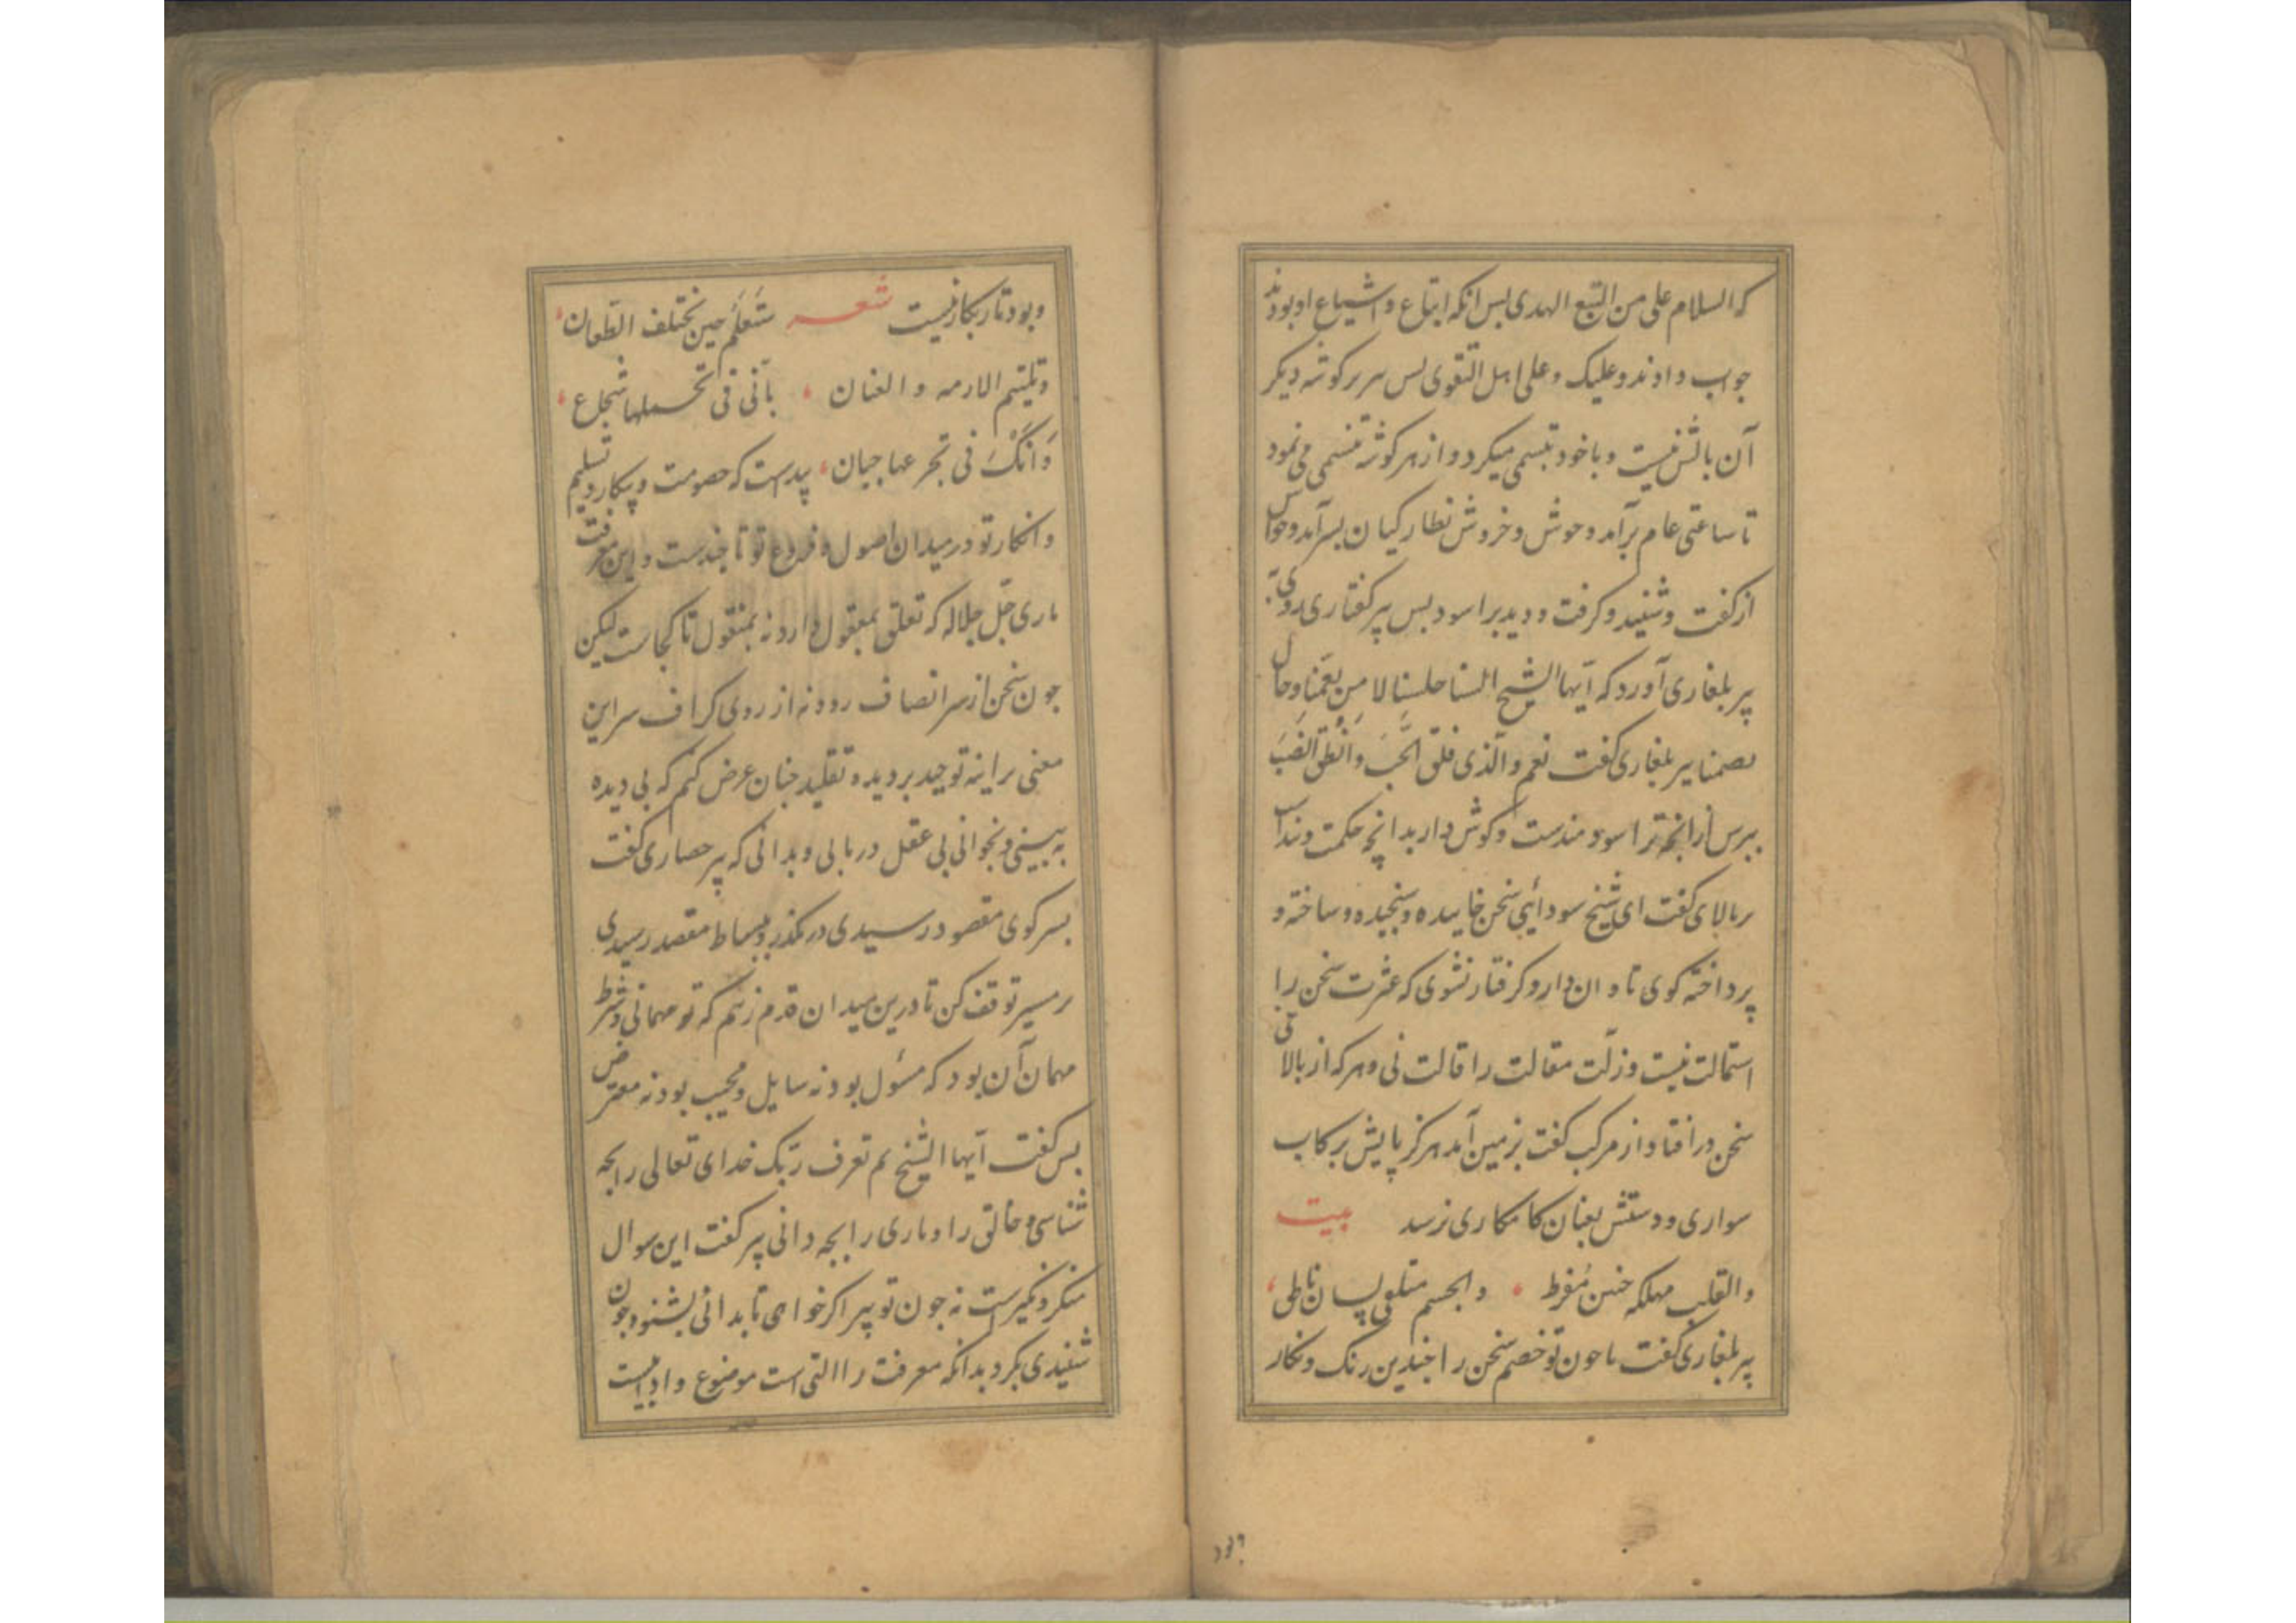 که السلام علی من التبع الهدی بس انکه اتباع و اشیاع او بودند
جواب دادند و علیک و علی اهل التقوی بس سر بر کوشه دیکر
آن بالش نیست و با خود تبسمی میکرد و از هر کوشه تنسمی می نمود
تا ساعتی عام برآمد و جوش و خروش نظارکیان بسرآمد و حواس
از کفت و شنید و کرفت و دید براسود بس پیر کفتاری روی به
پیر بلغاری آورد که ایها الشیخ السنا جلسنا لا من نعمنا و حال
بصمنا پیر بلغاری کفت نعم والذی فلق الحب و انطق الضب
ببرس ازانچه ترا سودمندست و کوش دار بدانچه حکمت و پنداست
بر بالای کفت ای شیخ سودائی سخن خاییده و سنجیده و ساخته و
پرداخته کوی تا در ان دار و کرفتار نشوی که عثرت سخن را
استمالت نیست و زلت مقالت را قالت نی و هرکه از بالای
سخن درافتاد از مرکب کفت بزمین آمد هرکز پایش برکاب
سواری و دستش بعنان کامکاری نرسد بیت
والقلب مهلکه حنین مفرط والجسم متلفی لسان ناطی
پیر بلغاری کفت با چون تو خصم سخن را چندین رنک و نکار
بود
و بود تار بکار نیست شعر ستعلم حین تختلف الطعان
و تلتیم الازمه و العنان بأنی فی تحملها شجاع
وانک فی تجرعها جبان پیدست که خصومت و پیکار و تسلیم
و انکار تو در میدان اصول و فروع تو تا چندست و این معرفت
باری جل جلاله که تعلق بمعقول دارد نه بمنقول تا کجاست لیکن
چون سخن از سر انصاف رود نه از روی کزاف سر این
معنی بر اینه توحید بر دیده تقلید چنان عرض کنم که بی دیده
به بینی و بخوانی بی عقل دریابی و بدانی که پیر حصاری کفت
بسر کوی مقصود رسیدی درمکذر و ببساط مقصد رسیدی
بر مسیر توقف کن تا درین میدان قدم زنم که تو مهمانی و شرط
مهمان آن بود که مسئول بود نه سایل و مجیب بود نه معترض
بس کفت ایها الشیخ بم تعرف ربک خدای تعالی را بچه
شناسی و خالق را و باری را بچه دانی پیر کفت این سوال
منکر و نکیرست نه چون تو پیر اکر خواهی تا بدانی بشنو و چون
شنیدی بکرد بدانکه معرفت را التی است موضوع و ادابیست